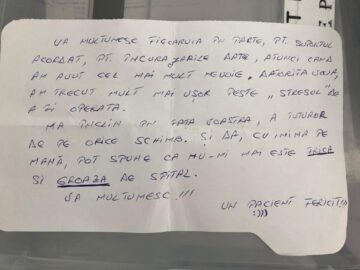 VĂ MULȚUMESC FIECĂRUIA ÎN PARTE, PT. SUPORTUL
ACORDAT, PT. ÎNCURAJĂRILE DATE, ATUNCI CÂND
AM AVUT CEL MAI MULT NEVOIE. DATORITĂ VOUĂ,
AM TRECUT MULT MAI UȘOR PESTE „STRESUL" DE
A FI OPERATĂ.
MĂ ÎNCLIN ÎN FAȚA VOASTRĂ, A TUTUROR
DE PE ORICE SCHIMB. ȘI DA, CU INIMA PE
MÂNĂ, POT SPUNE CĂ NU-MI MAI ESTE FRICĂ
ȘI GROAZĂ DE SPITAL.
VĂ MULȚUMESC!!!
UN PACIENT FERICIT!!!
:)))